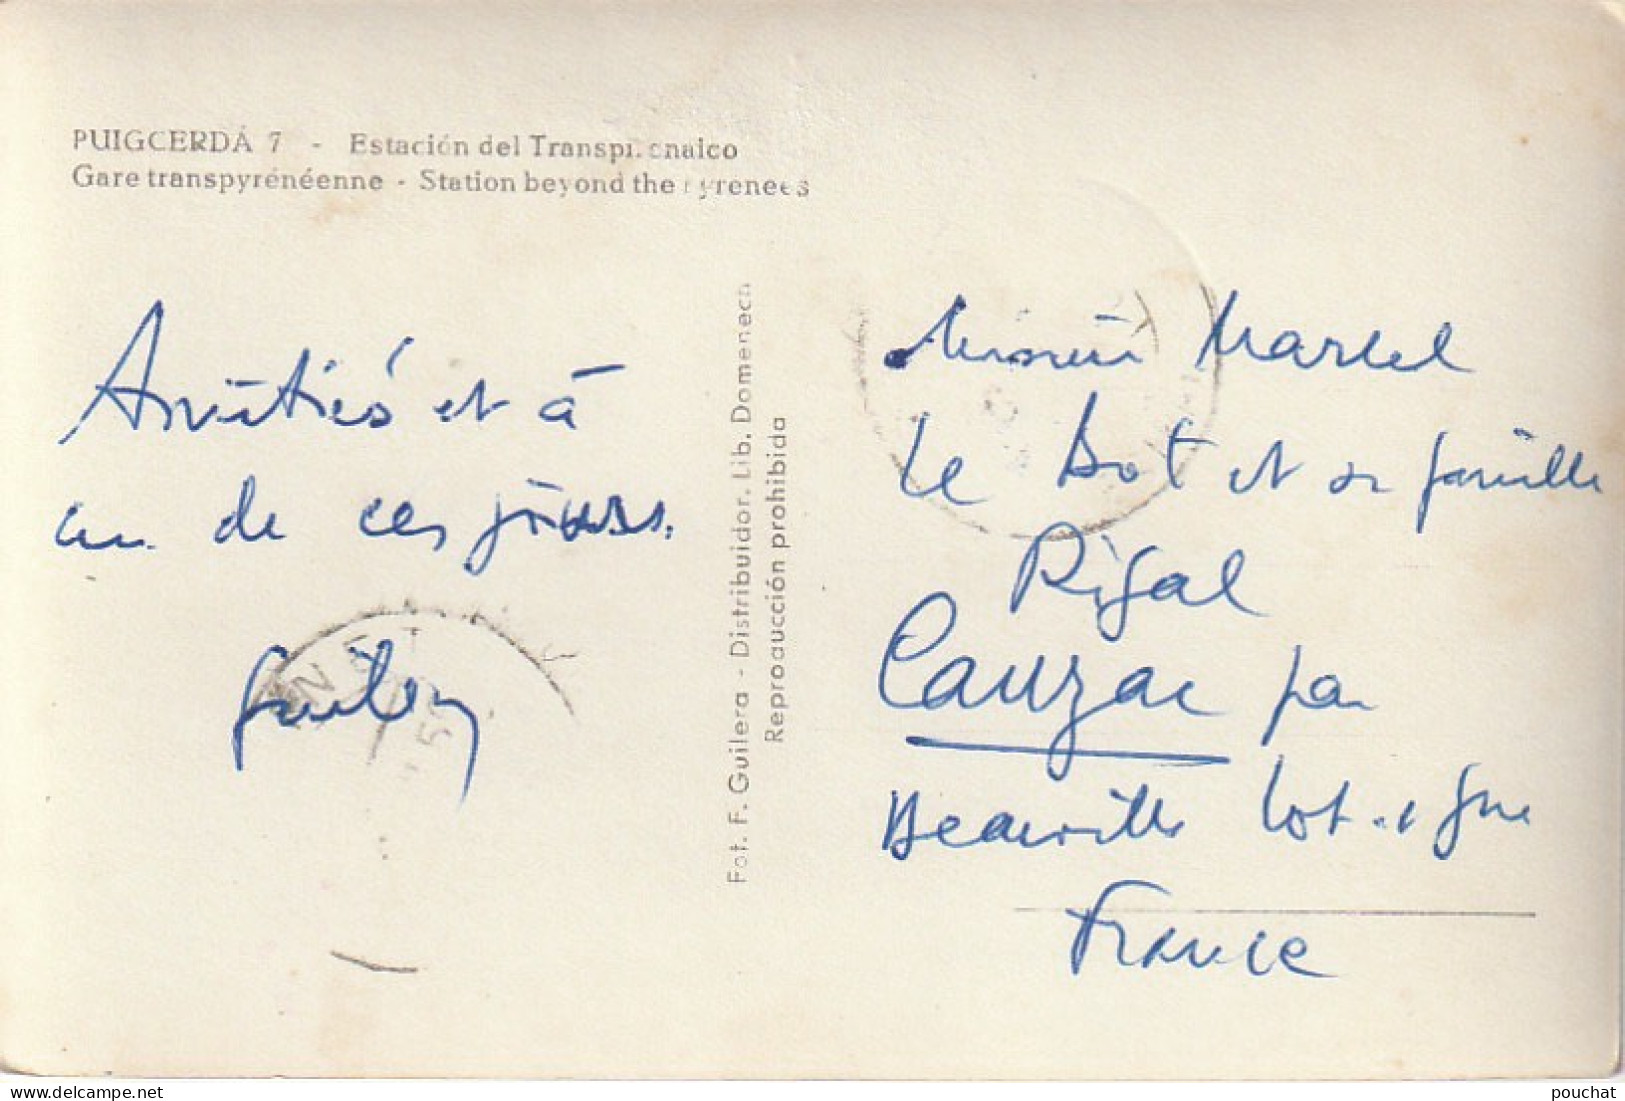 PUIGCERDÁ 7 - Estación del Transpirenaico
Gare transpyrénéenne - Station beyond the Pyrenees
Amitiés et à
un de ces jours.
Fot. F. Guilera - Distribuidor. Lib. Domenech
Reproducción prohibida
Monsieur Marcel
Le Bot et sa famille
Rigal
Cauzac par
Beauville Lot-et-Gne
France
pouchat